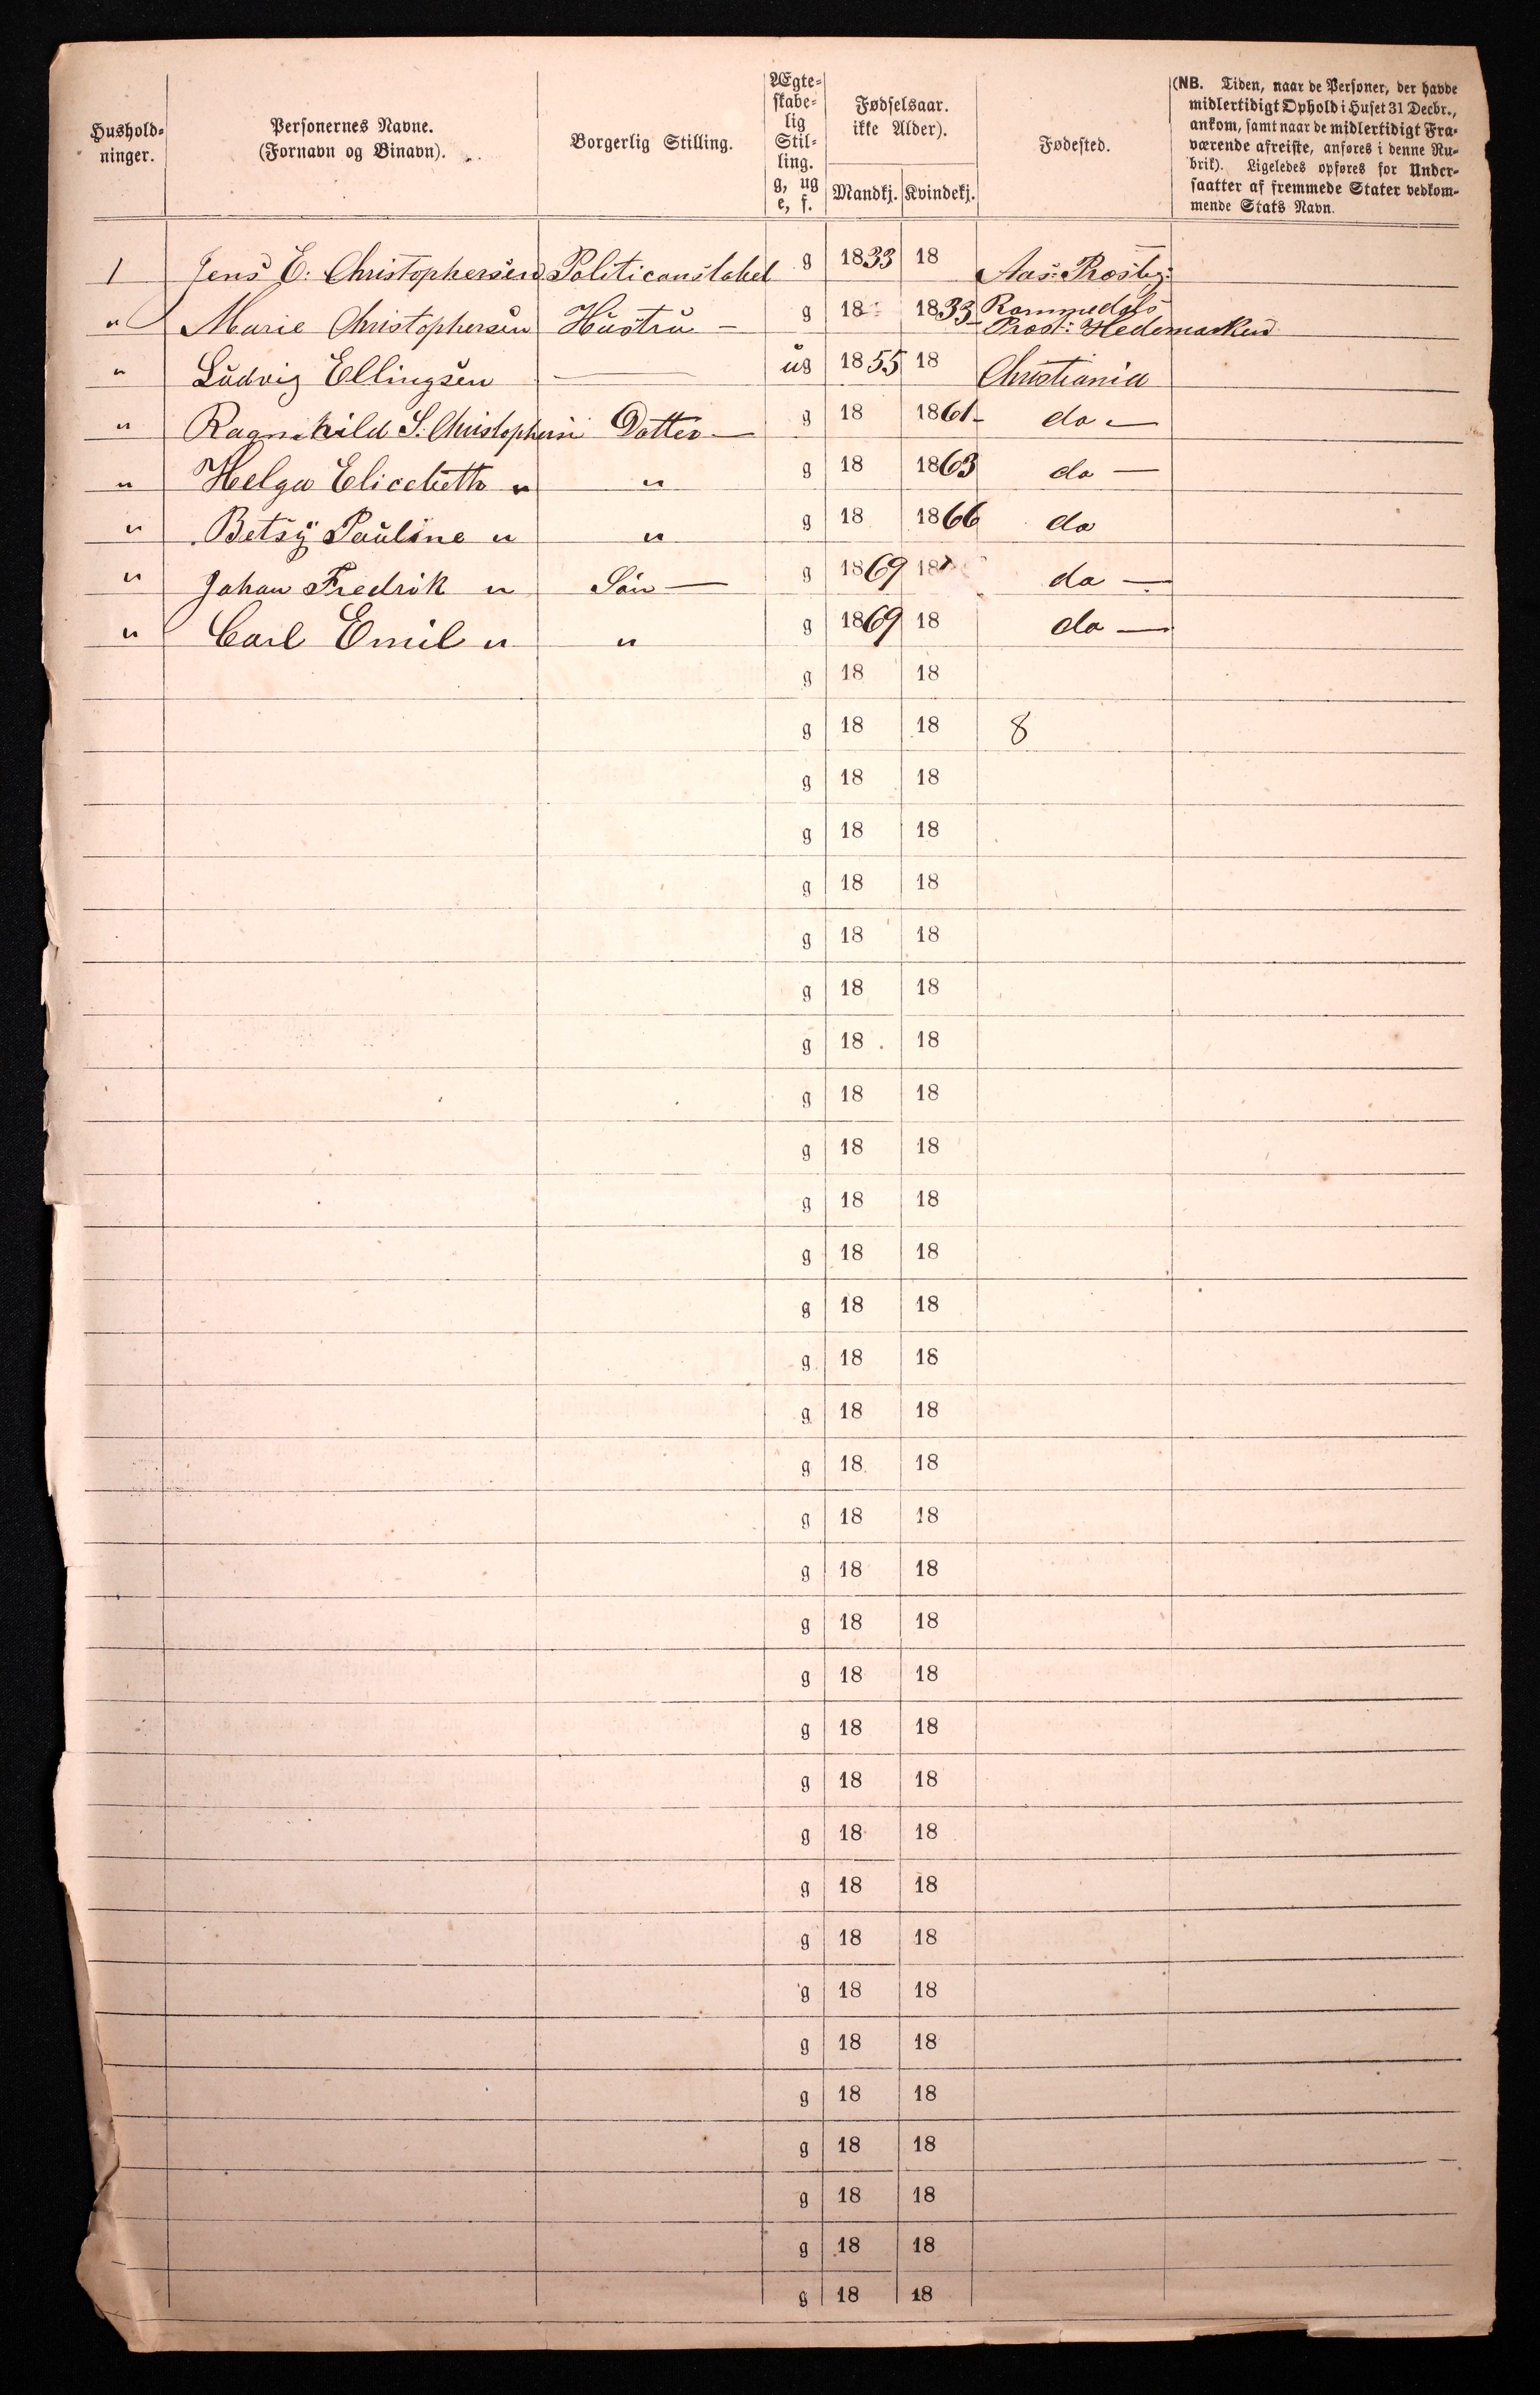 Hushold-
ninger.
Personernes Navne.
(Fornavn og Binavn).
Borgerlig Stilling.
Ægte-
skabe-
lig
Stil-
ling.
g, ug
e, f.
Fødselsaar.
ikke Alder).
Mandkj. Kvindekj.
Fødested.
(NB. Tiden, naar de Personer, der havde
midlertidigt Ophold i Huset 31 Decbr.,
ankom, samt naar de midlertidigt Fra-
værende afreiste, anføres i denne Ru-
brik). Ligeledes opføres for Under-
saatter af fremmede Stater vedkom-
mende Stats Navn.
1 Jens E: Christophersen Politiconstabel g 1833 18 Aas: Præstegj:
" Marie Christophersen Hustru — g 18 1833 Rommedals
Præst: Hedemarken
" Ludvig Ellingsen — ug 1855 18 Christiania
" Ragnhild S. Christophersen Datter — g 18 1861 — do —
" Helga Elicebeth " " g 18 1863 do —
" Betsy Pauline " " g 18 1866 do
" Johan Fredrik " Sön — g 1869 18 do —
" Carl Emil " " g 1869 18 do —
g 18 18
g 18 18 8
g 18 18
g 18 18
g 18 18
g 18 18
g 18 18
g 18 18
g 18 18
g 18 18
g 18 18
g 18 18
g 18 18
g 18 18
g 18 18
g 18 18
g 18 18
g 18 18
g 18 18
g 18 18
g 18 18
g 18 18
g 18 18
g 18 18
g 18 18
g 18 18
g 18 18
g 18 18
g 18 18
g 18 18
g 18 18
g 18 18